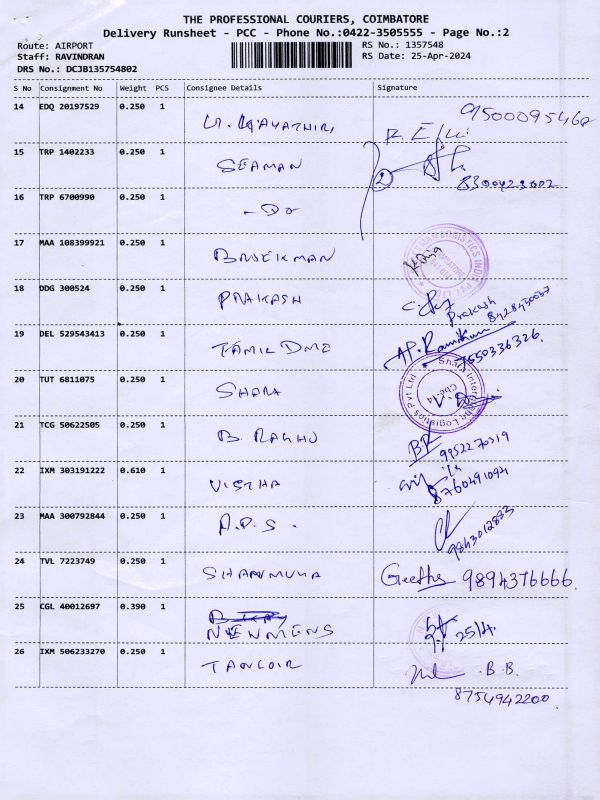 THE PROFESSIONAL COURIERS, COIMBATORE
Delivery Runsheet - PCC - Phone No.:0422-3505555 - Page No.:2
Route: AIRPORT RS No.: 1357548
Staff: RAVINDRAN RS Date: 25-Apr-2024
DRS No.: DCJB135754802
S No Consignment No Weight PCS Consignee Details Signature
14 EDQ 20197529 0.250 1 9500095460
15 TRP 1402233 0.250 1 SEAMAN 2
8300423602
16 TRP 6700990 0.250 1 - Do
17 MAA 108399921 0.250 1
18 DDG 300524 0.250 1 PRAKASH
Prakash
8428450067
19 DEL 529543413 0.250 1 TAMIL DME
7550336326
20 TUT 6811075 0.250 1 SHARA
21 TCG 50622505 0.250 1 B. RAGHU BR
9952270319
22 IXM 303191222 0.610 1
8760491094
23 MAA 300792844 0.250 1 A.P.S.
9843012883
24 TVL 7223749 0.250 1 SHANMUKA Geetha 9894376666.
25 CGL 40012697 0.390 1 25/4
26 IXM 506233270 0.250 1 B.B.
8754942200